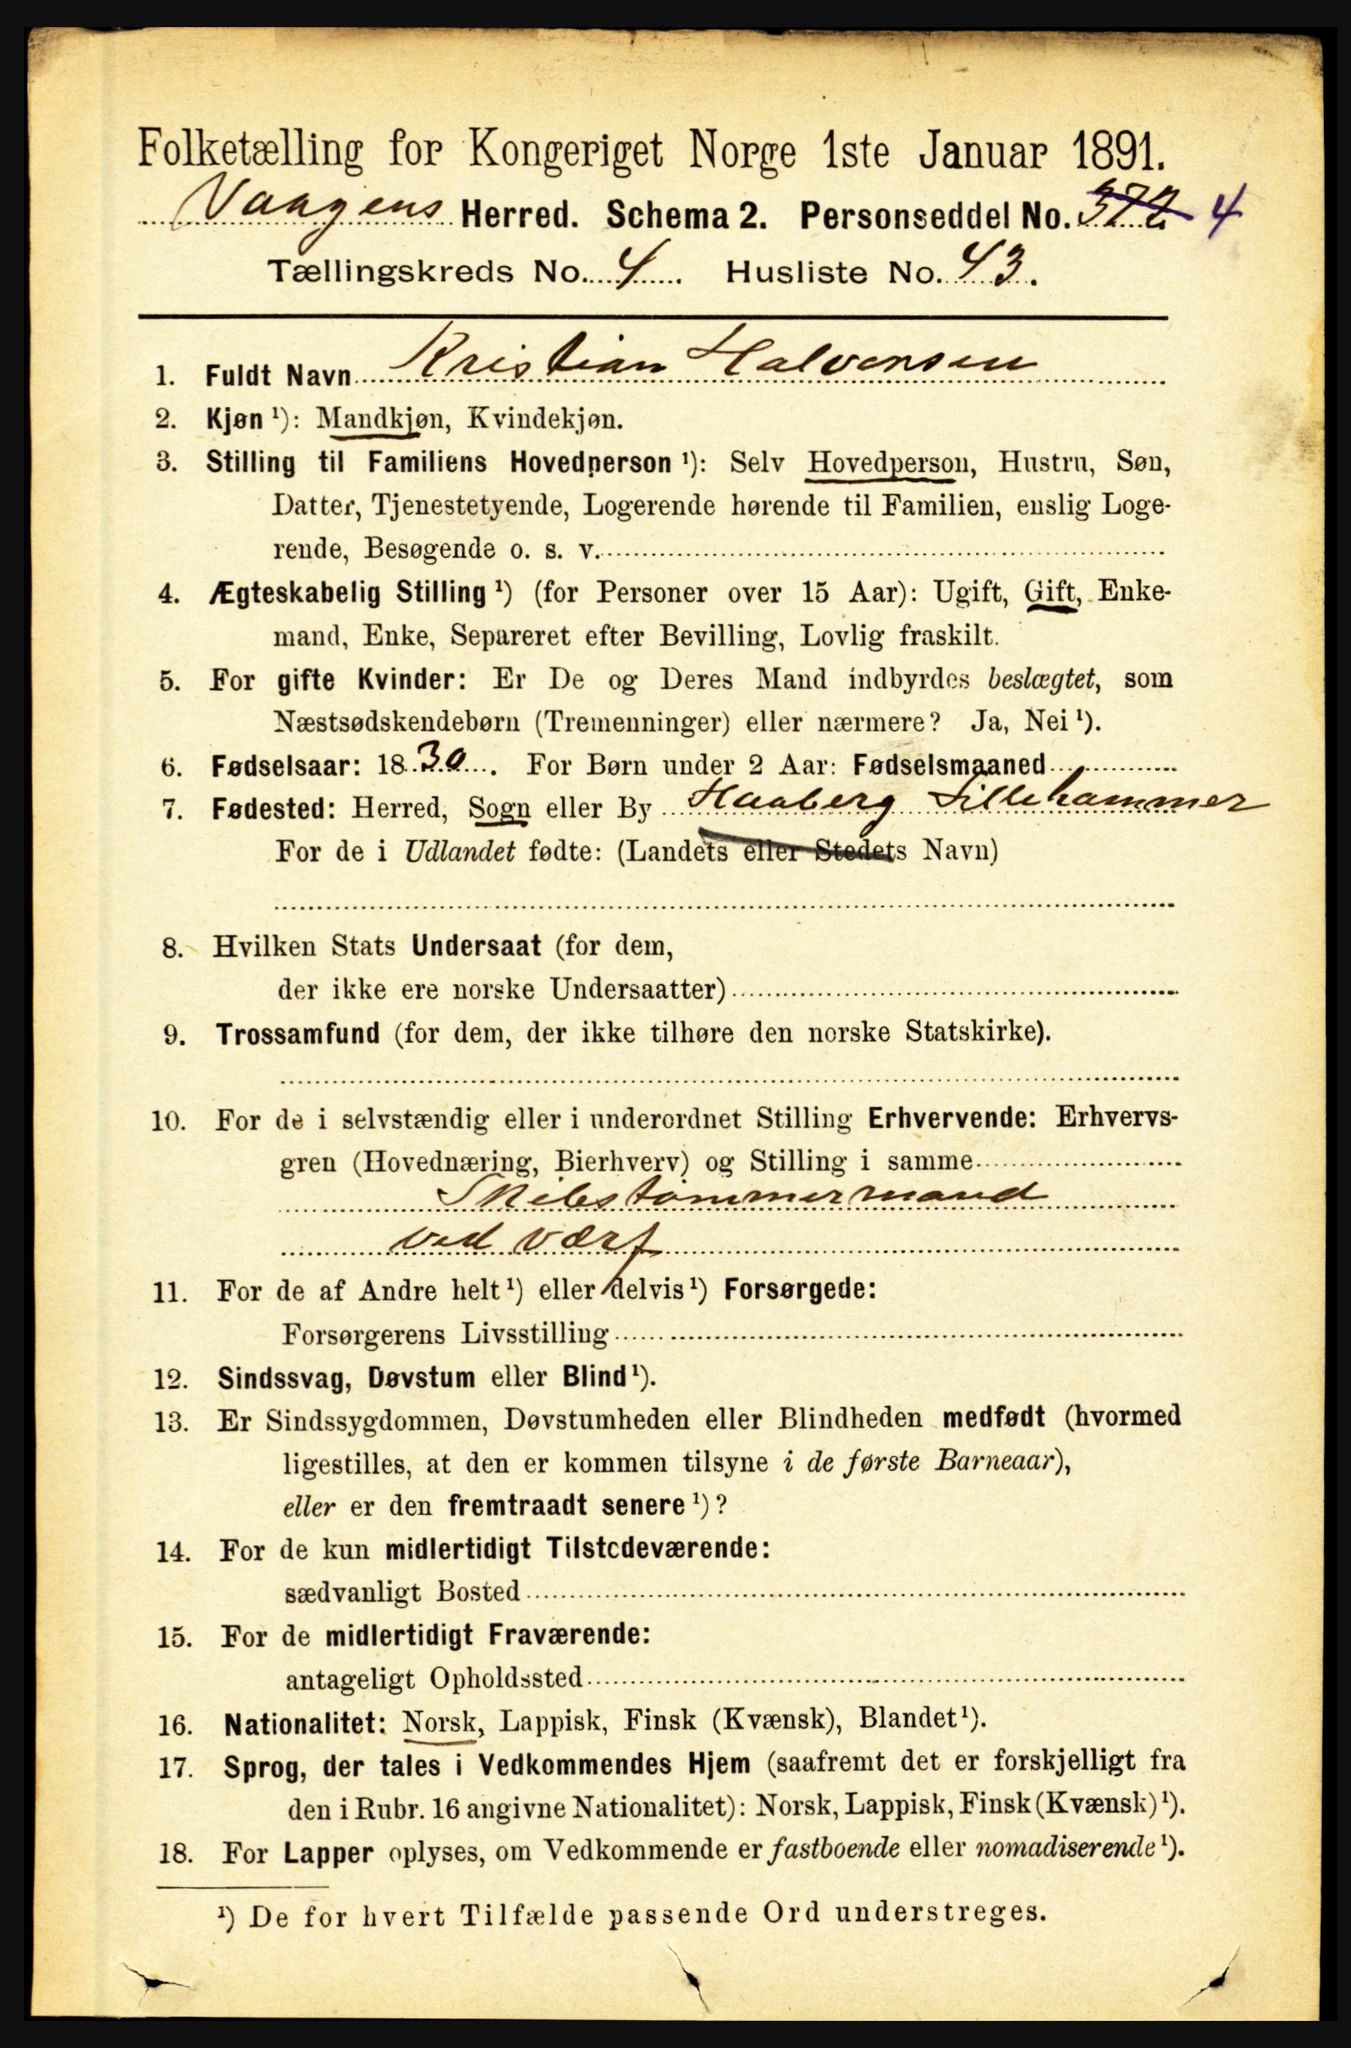 Folketælling for Kongeriget Norge 1ste Januar 1891.
Vaagens Herred. Schema 2. Personseddel No. 372 4
Tællingskreds No. 4. Husliste No. 43.
1. Fuldt Navn Kristian Halvorsen
2. Kjøn ¹): Mandkjøn, Kvindekjøn.
3. Stilling til Familiens Hovedperson ¹): Selv Hovedperson, Hustru, Søn,
Datter, Tjenestetyende, Logerende hørende til Familien, enslig Loge-
rende, Besøgende o. s. v.
4. Ægteskabelig Stilling ¹) (for Personer over 15 Aar): Ugift, Gift, Enke-
mand, Enke, Separeret efter Bevilling, Lovlig fraskilt.
5. For gifte Kvinder: Er De og Deres Mand indbyrdes beslægtet, som
Næstsødskendebørn (Tremenninger) eller nærmere? Ja, Nei ¹).
6. Fødselsaar: 1830. For Børn under 2 Aar: Fødselsmaaned
7. Fødested: Herred, Sogn eller By Haaberg Lillehammer
For de i Udlandet fødte: (Landets eller Stedets Navn)
8. Hvilken Stats Undersaat (for dem,
der ikke ere norske Undersaatter)
9. Trossamfund (for dem, der ikke tilhøre den norske Statskirke).
10. For de i selvstændig eller i underordnet Stilling Erhvervende: Erhvervs-
gren (Hovednæring, Bierhverv) og Stilling i samme
Skibstømmermand
ved Værf
11. For de af Andre helt ¹) eller delvis ¹) Forsørgede:
Forsørgerens Livsstilling
12. Sindssvag, Døvstum eller Blind ¹).
13. Er Sindssygdommen, Døvstumheden eller Blindheden medfødt (hvormed
ligestilles, at den er kommen tilsyne i de første Barneaar),
eller er den fremtraadt senere ¹)?
14. For de kun midlertidigt Tilstedeværende:
sædvanligt Bosted
15. For de midlertidigt Fraværende:
antageligt Opholdssted
16. Nationalitet: Norsk, Lappisk, Finsk (Kvænsk), Blandet ¹).
17. Sprog, der tales i Vedkommendes Hjem (saafremt det er forskjelligt fra
den i Rubr. 16 angivne Nationalitet): Norsk, Lappisk, Finsk (Kvænsk) ¹).
18. For Lapper oplyses, om Vedkommende er fastboende eller nomadiserende ¹).
¹) De for hvert Tilfælde passende Ord understreges.